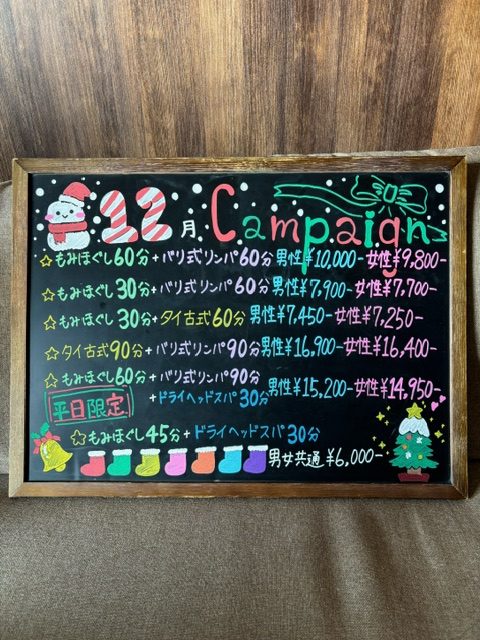 12月 Campaign
☆もみほぐし60分+バリ式リンパ60分 男性¥10,000- 女性¥9,800-
☆もみほぐし30分+バリ式リンパ60分 男性¥7,900- 女性¥7,700-
☆もみほぐし30分+タイ古式60分 男性¥7,450- 女性¥7,250-
☆タイ古式90分+バリ式リンパ90分 男性¥16,900- 女性¥16,400-
☆もみほぐし60分+バリ式リンパ90分
+ドライヘッドスパ30分 男性¥15,200- 女性¥14,950-
平日限定
☆もみほぐし45分+ドライヘッドスパ30分
男女共通 ¥6,000-